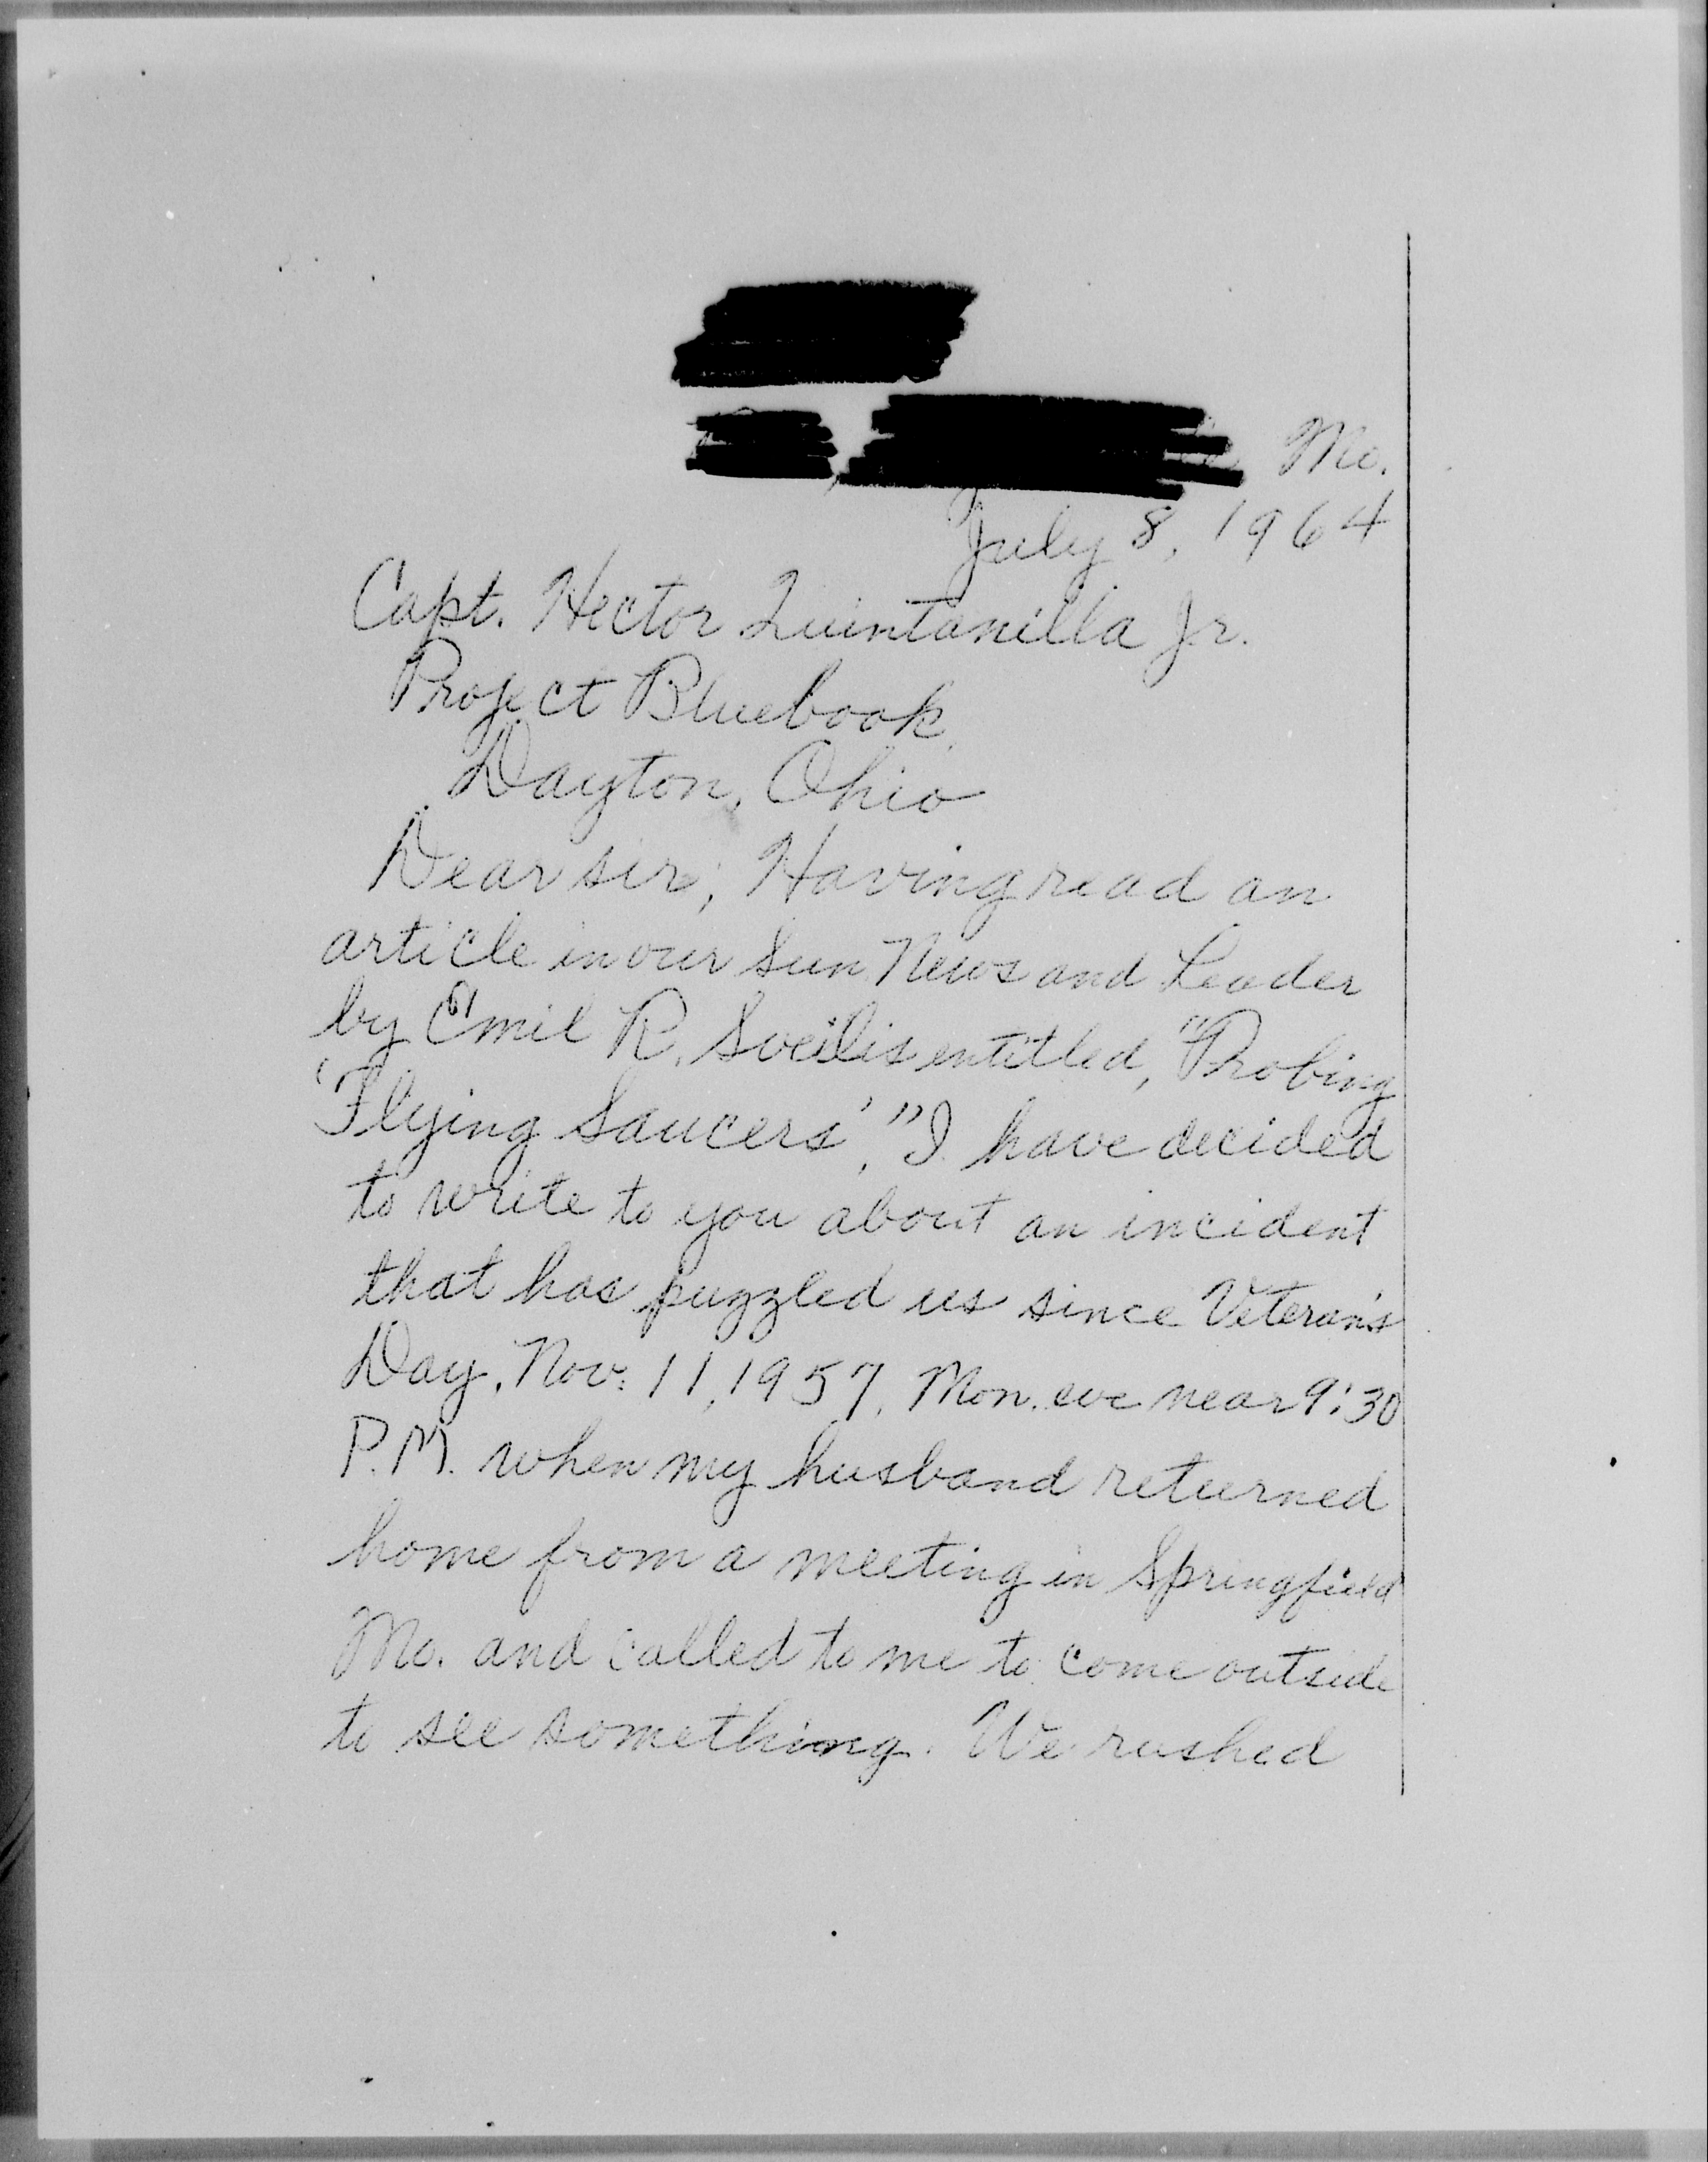 Mo.
July 8, 1964
Capt. Hector Quintanilla Jr.
Project Bluebook
Dayton, Ohio
Dear sir; Having read an
article in our Sun. News and Leader
by Emil R. Sveilis entitled, "Probing
'Flying Saucers'," I have decided
to write to you about an incident
that has puzzled us since Veteran's
Day, Nov. 11, 1957, Mon. eve near 9:30
P.M. when my husband returned
home from a meeting in Springfield
Mo. and called to me to come outside
to see something. We rushed